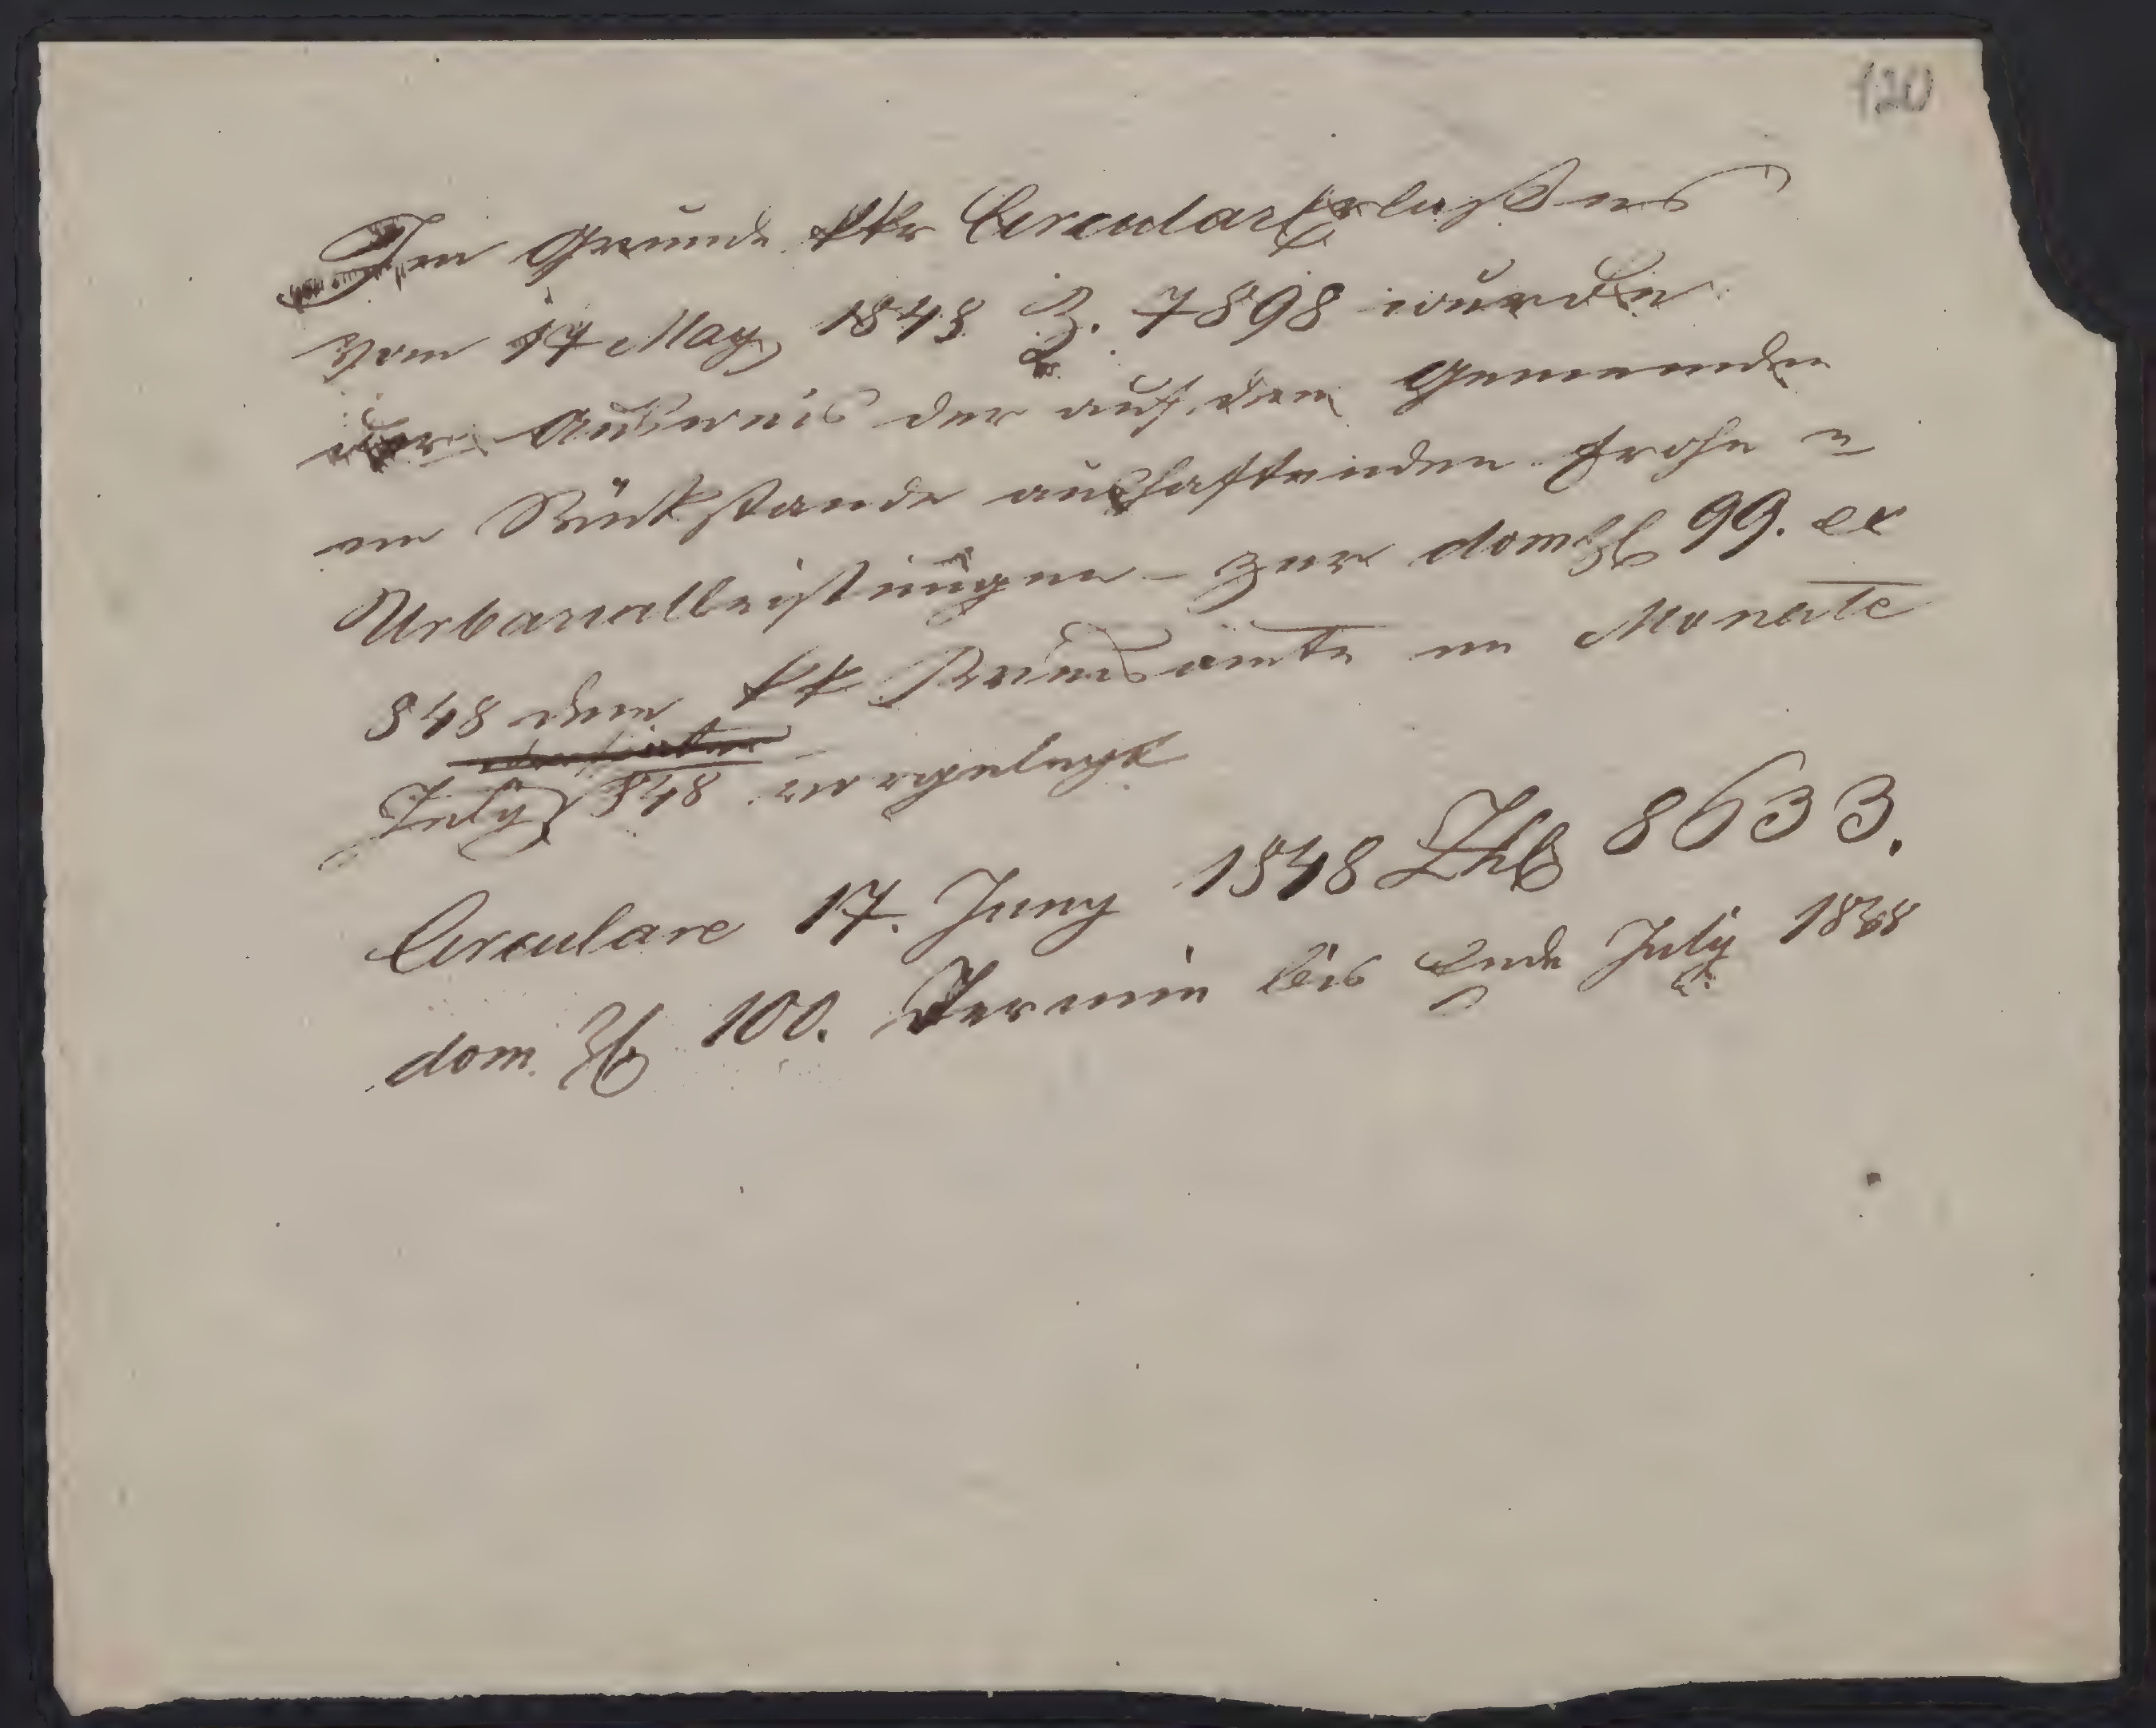 120
Im Grunde kkr Circular Erlaßens
vom 17 May 1848 Z. 7898 wurde
der Ausweis der auf den Gemeinden
im Rückstande aushaftenden Frohn u
Urbarialleistungen – zur dom Zl 99. ex
848 dem kk Kreisamte im Monate
July 848 vorgelegt
Circulare 17. Juny 1848 Zhl 8633.
dom. Zl 100. Termin bis Ende July 1848